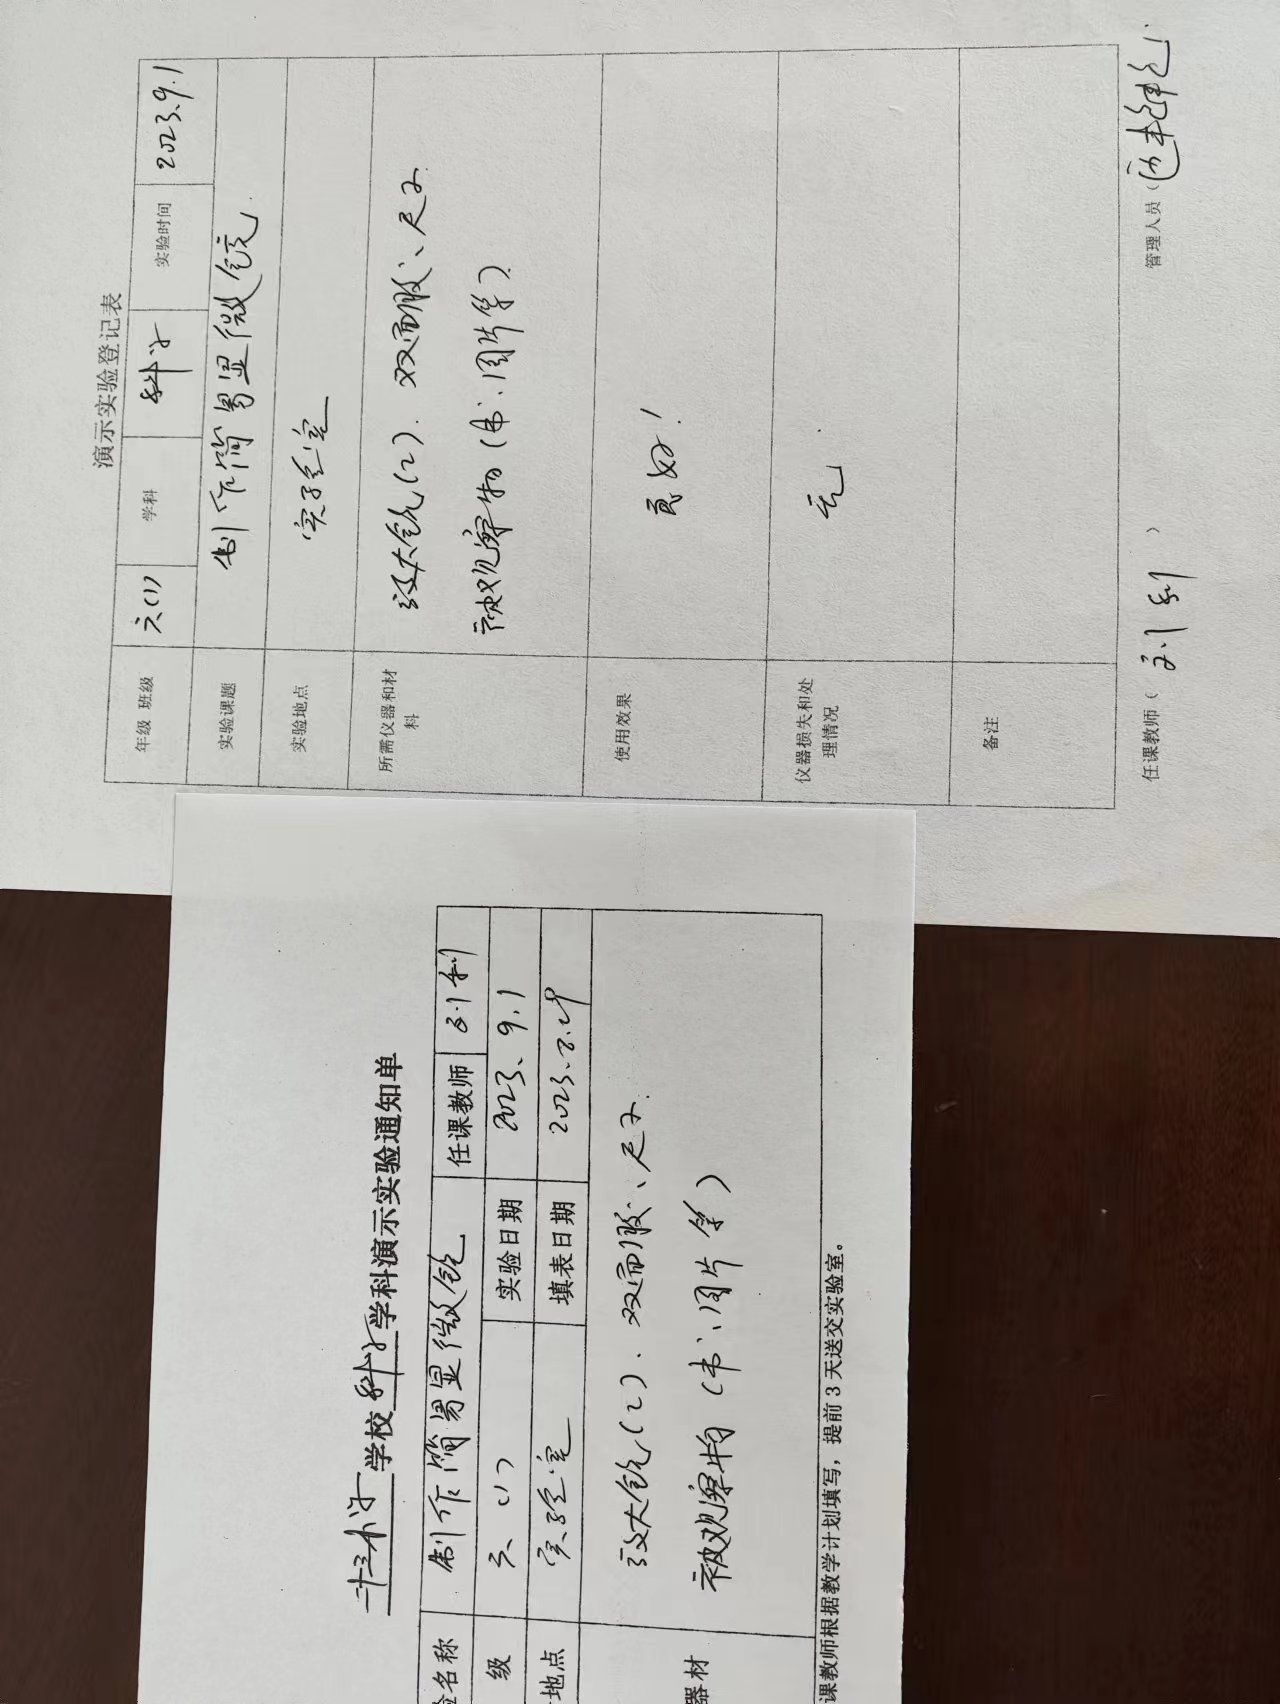 演示实验登记表
年级 班级 六(1) 学科 科学 实验时间 2023.9.1
实验课题 制作简易显微镜.
实验地点 实验室
所需仪器和材
料
放大镜(2). 双面胶、尺子
被观察物(书、图片等)
使用效果 良好!
仪器损失和处
理情况 无.
备注
任课教师( ) 管理人员(
二十三小学 学校 科学 学科演示实验通知单
验名称 制作简易显微镜 任课教师
级 六(1) 实验日期 2023.9.1
地点 实验室 填表日期
器材
放大镜(2). 双面胶、尺子.
被观察物(书、图片等)
课教师根据教学计划填写，提前3天送交实验室。